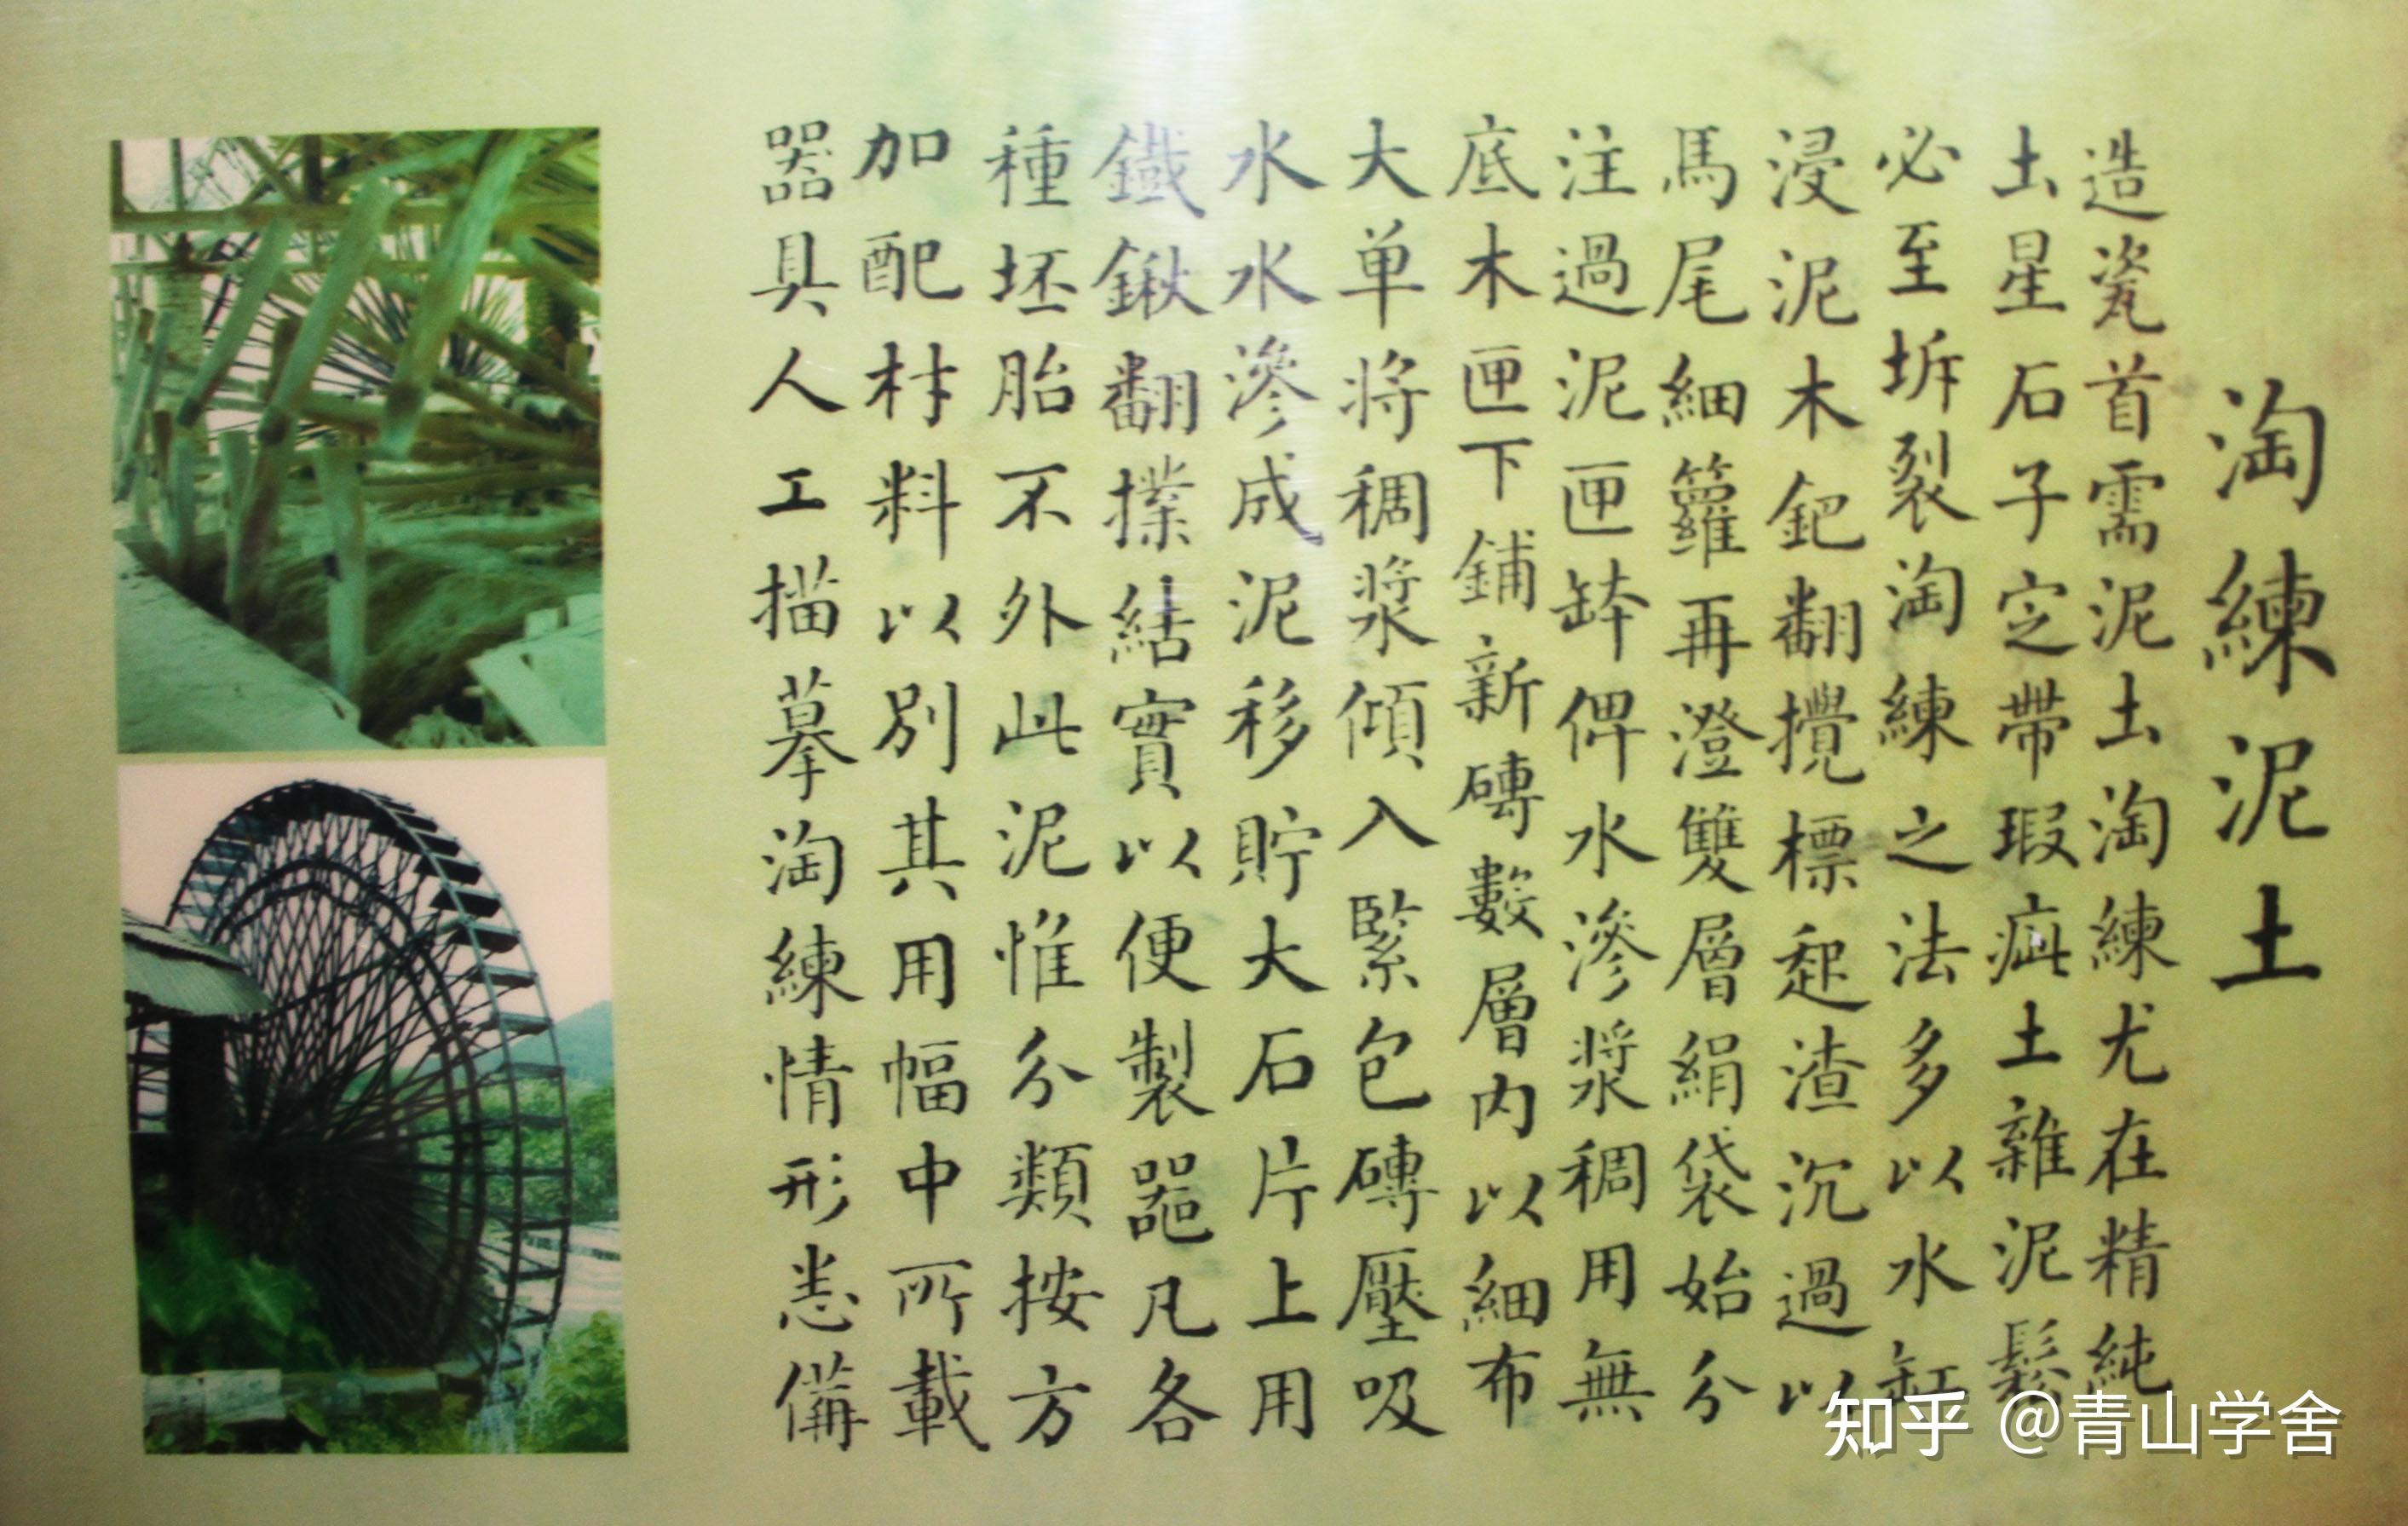 淘練泥土
造瓷首需泥土淘練尤在精純
土星石子定帶瑕疵土雜泥鬆
必至坼裂淘練之法多以水缸
浸泥木鈀翻攪標起渣沉過以
馬尾細籮再澄雙層絹袋始分
注過泥匣缽俾水滲漿稠用無
底木匣下鋪新磚數層內以細布
大单將稠漿傾入緊包磚壓吸
水水滲成泥移貯大石片上用
鐵鍬翻撲結實以便製器凡各
種坯胎不外此泥惟分類按方
加配材料以別其用幅中所載
器具人工描摹淘練情形悉備
知乎 @青山学舍